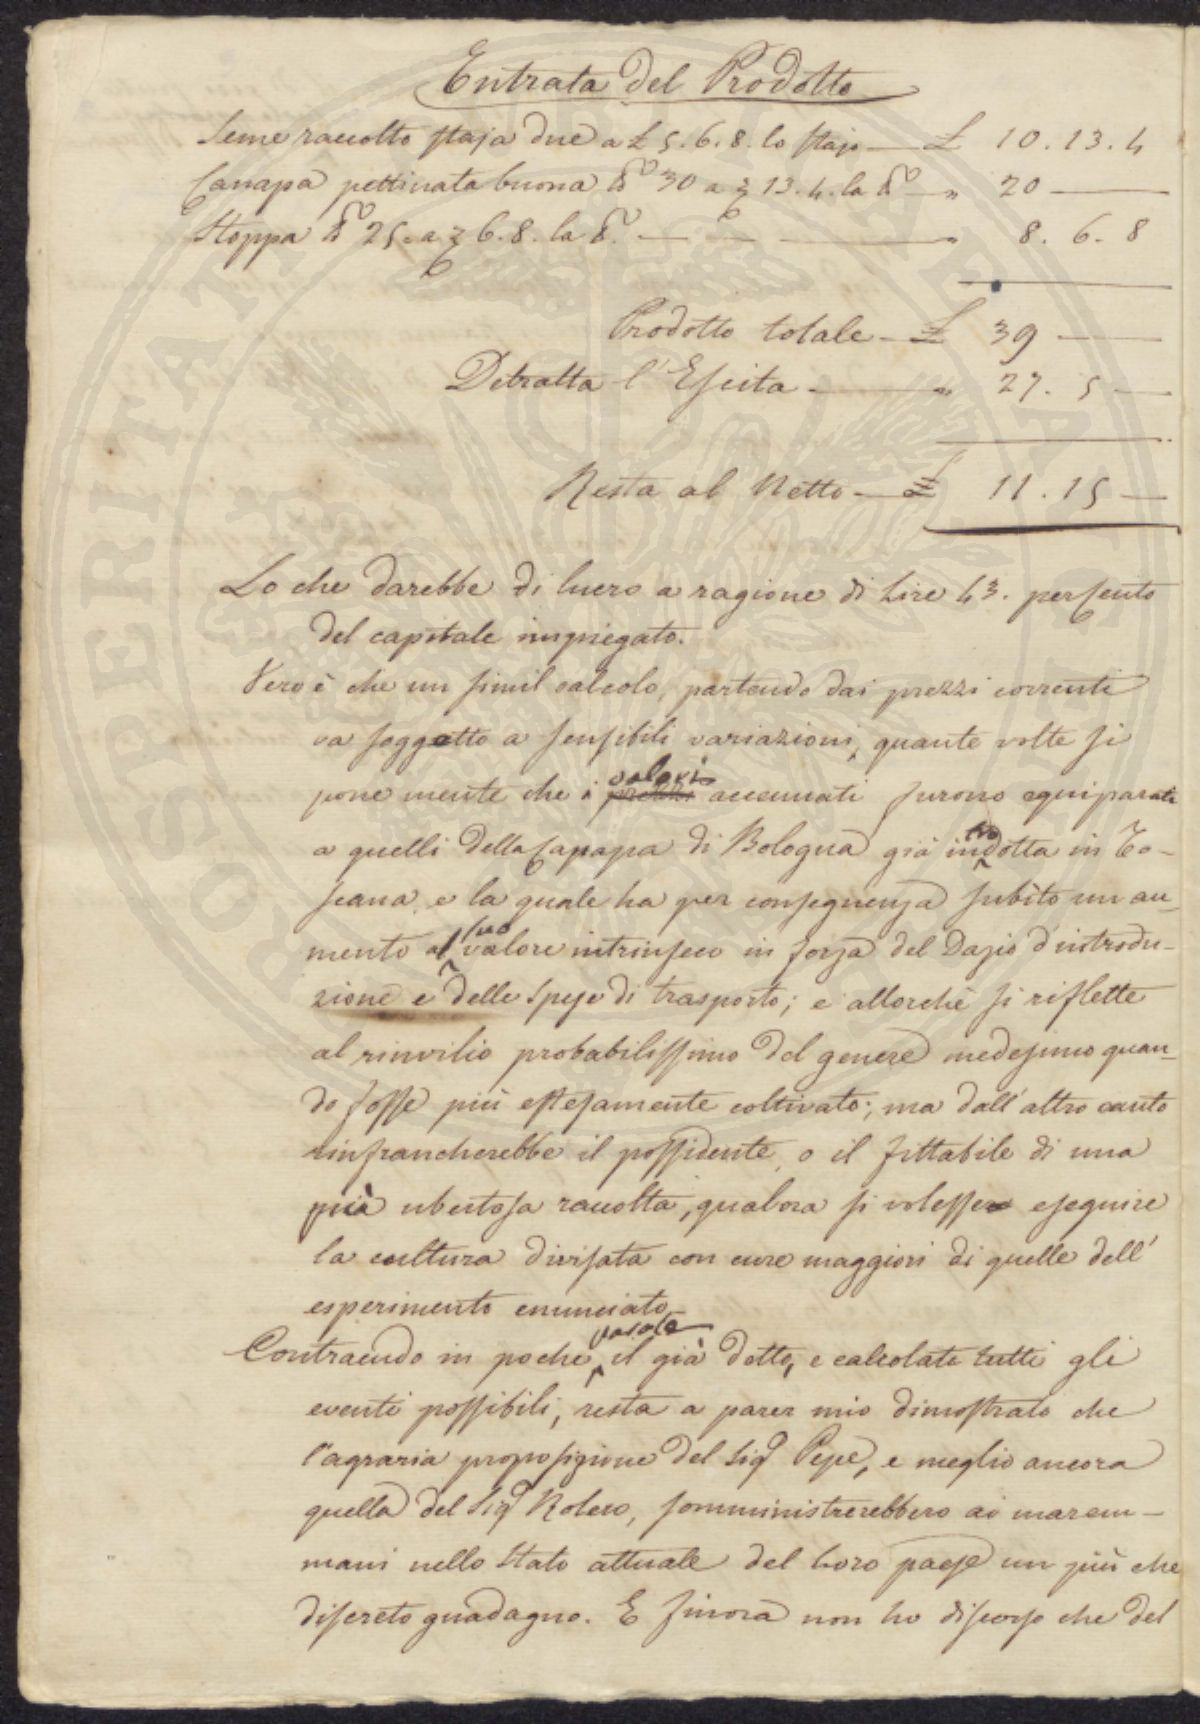 Entrata del Prodotto
Seme raccolto staja due a £ 5. 6. 8. lo stajo — £ 10. 13. 4
Canapa pettinata buona 30 a 13. 4. la — „ 20 —
Stoppa 25. a 6. 8. la — „ 8. 6. 8
Prodotto totale — £ 39 —
Detratta l'Escita — „ 27. 5 —
Resta al Netto — £ 11. 15 —
Lo che darebbe di lucro a ragione di Lire 43. per cento
del capitale impiegato.
Vero è che un simil calcolo, partendo dai prezzi correnti
va soggetto a sensibili variazioni, quante volte si
valori
pone mente che i prezzi accennati furono equiparati
a quelli della Canapa di Bologna già introdotta in To-
scana, e la quale ha per conseguenza subìto un au-
suo
mento al valore intrinseco in forza del Dazio d'introdu-
zione e delle Spese di trasporto; e allorchè si riflette
al rinvilio probabilissimo del genere medesimo quan-
do fosse più estesamente coltivato; ma dall'altro canto
rinfrancherebbe il possidente, o il fittabile di una
più ubertosa raccolta, qualora si volesse eseguire
la cultura divisata con cure maggiori di quelle dell'
esperimento enunciato.
parole
Contraendo in poche il già detto, e calcolati tutti gli
eventi possibili, resta a parer mio dimostrato che
l'agraria proposizione del Sigr Pepe, e meglio ancora
quella del Sigr Roleo, somministrerebbero ai marem-
mani nello Stato attuale del loro paese un più che
discreto guadagno. E finora non ho discorso che del